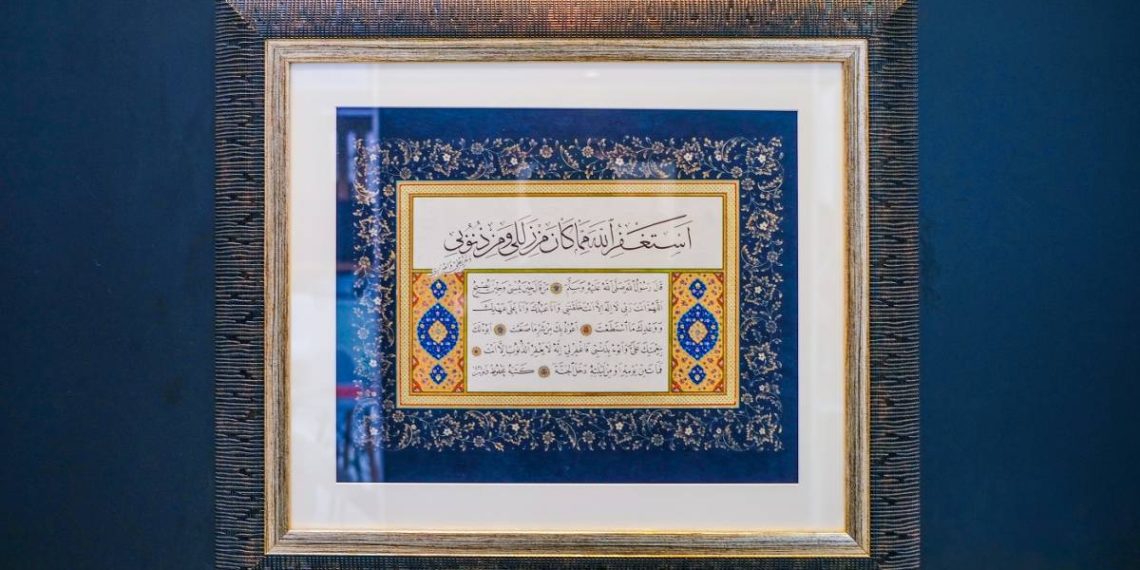 أستغفر الله مما كان من زللي ومن ذنوبي
قال رسول الله صلى الله عليه وسلم من قال حين يمسي وحين يصبح
اللهم انت ربي لا اله الا انت خلقتني وانا عبدك وانا على عهدك
ووعدك ما استطعت اعوذ بك من شر ما صنعت ابوء لك
بنعمتك علي وابوء بذنبي فاغفر لي انه لا يغفر الذنوب الا انت
فمات من يومه او من ليلته دخل الجنة كتبه محفوظ ذنون